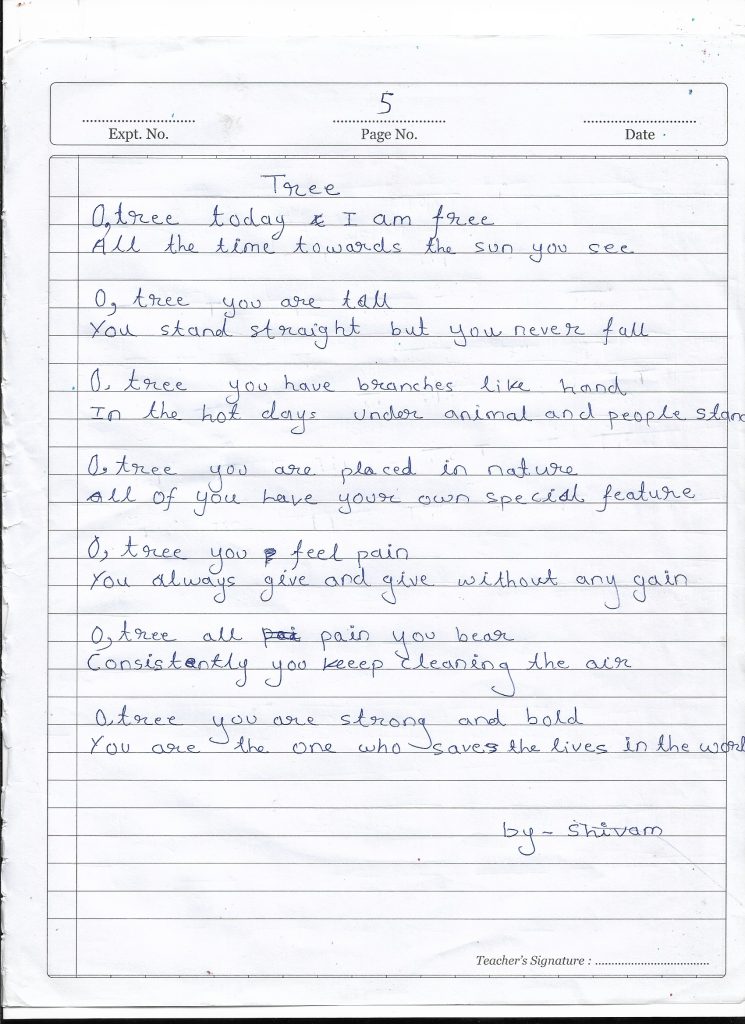 5
Expt. No.
Page No.
Date
Tree
O, tree today I am free
All the time towards the sun you see
O, tree you are tall
You stand straight but you never fall
O, tree you have branches like hand
In the hot days under animal and people stand
O, tree you are placed in nature
All of you have your own special feature
O, tree you feel pain
You always give and give without any gain
O, tree all pain you bear
Consistently you keeep cleaning the air
O, tree you are strong and bold
You are the one who saves the lives in the worl
by - Shivam
Teacher's Signature :